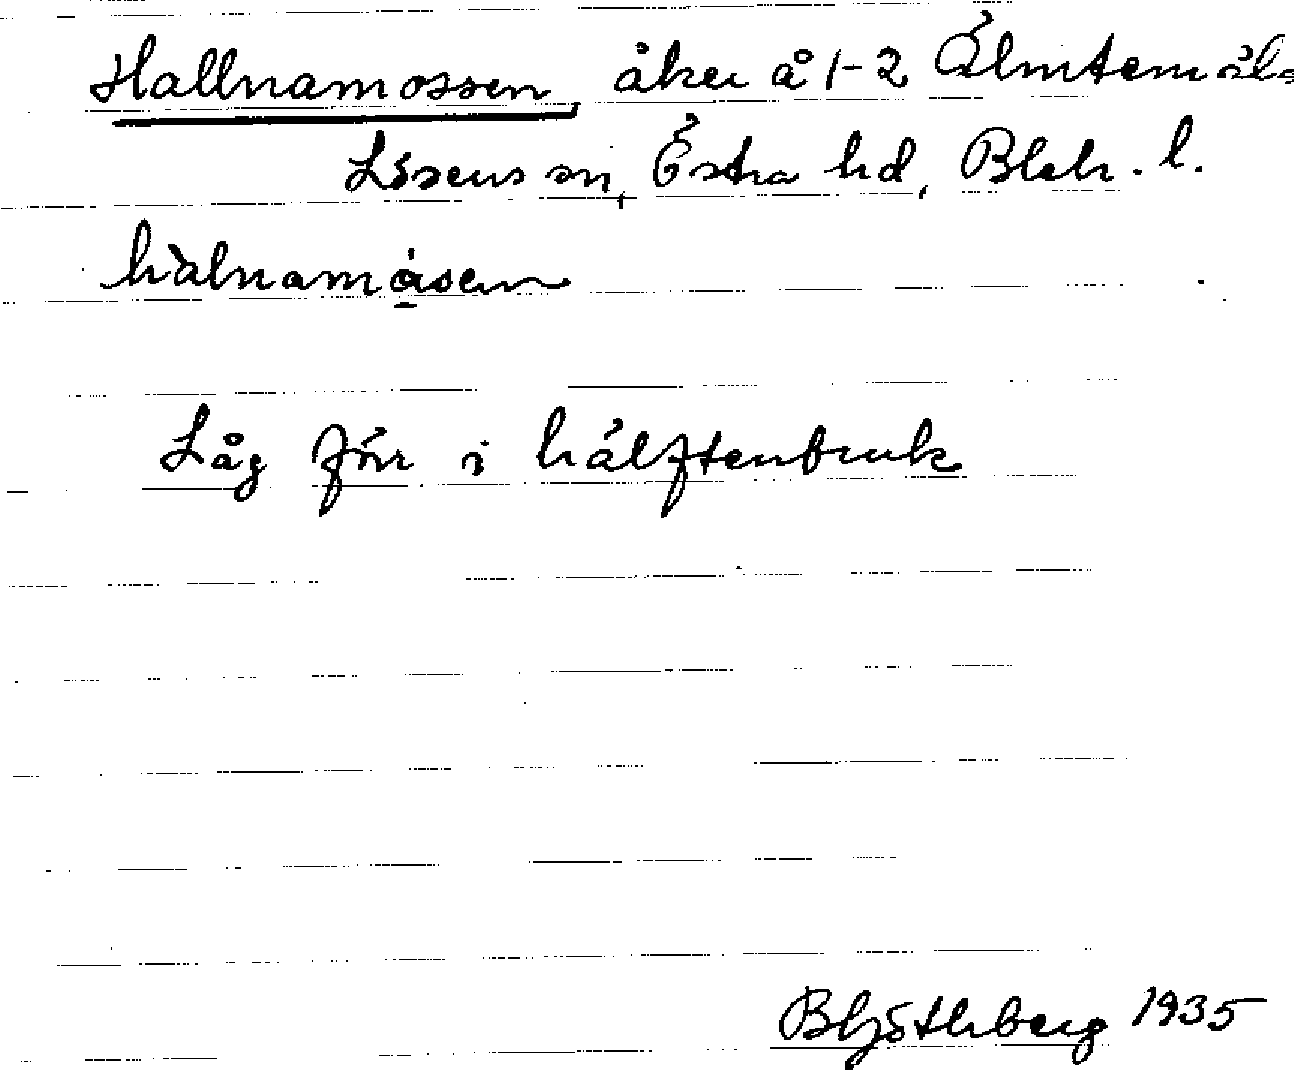 Hallnamossen, åker å 1-2 Älmtamåls
Lösens sn, Östra hd, Blek. l.
hàlnamåsen
Låg förr i hälftenbruk
1935